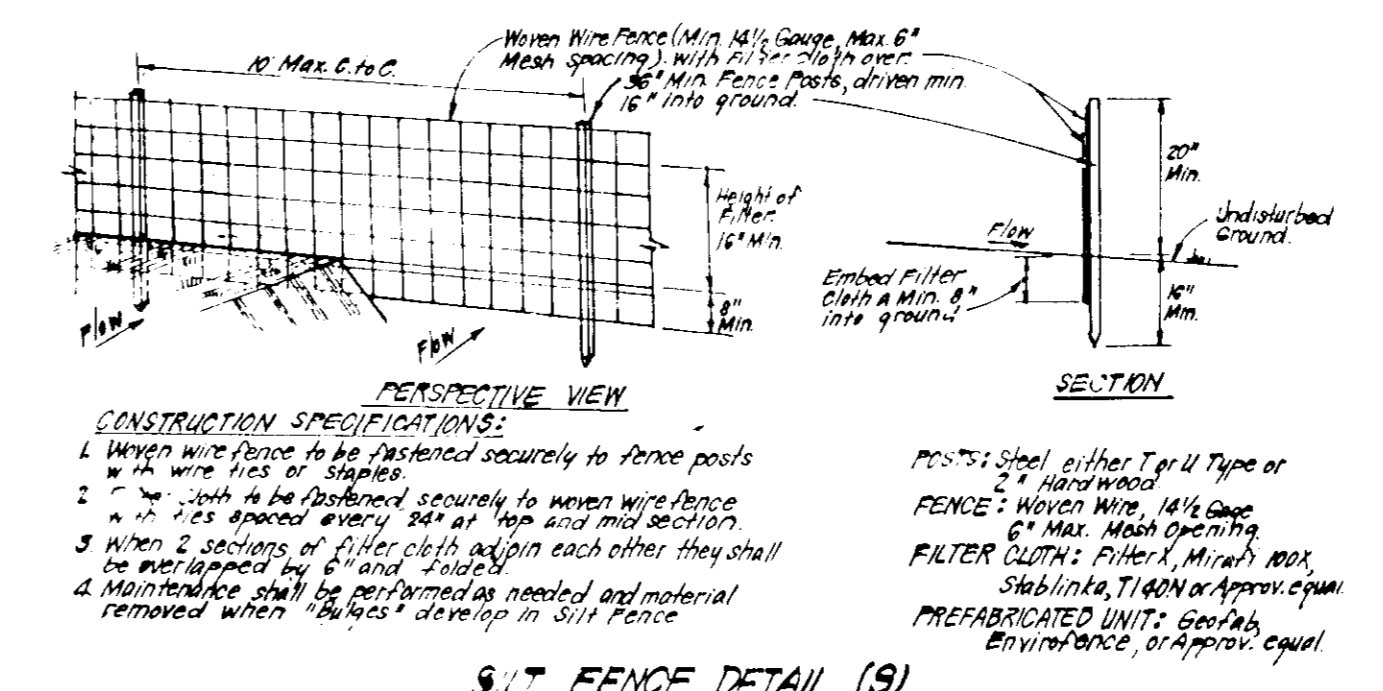 Woven Wire Fence (Min. 14½ Gauge, Max. 6"
Mesh Spacing) with Filter Cloth over.
10' Max. C. to C.
36" Min. Fence Posts, driven min.
16" into ground.
Height of
Filter.
16" Min.
8"
Min.
Flow
Flow
PERSPECTIVE VIEW
20"
Min.
Undisturbed
Ground.
Flow
Embed Filter
Cloth A Min. 8"
into ground
16"
Min.
SECTION
CONSTRUCTION SPECIFICATIONS:
1. Woven wire fence to be fastened securely to fence posts
with wire ties or staples.
2. Cloth to be fastened securely to woven wire fence
with ties spaced every 24" at top and mid section.
3. When 2 sections of filter cloth adjoin each other they shall
be overlapped by 6" and folded.
4. Maintenance shall be performed as needed and material
removed when "Bulges" develop in Silt Fence
POSTS: Steel either T or U Type or
2" Hardwood
FENCE: Woven Wire, 14½ Gage
6" Max. Mesh Opening.
FILTER CLOTH: Filter X, Mirafi 100X,
Stablinka, T140N or Approv. equal.
PREFABRICATED UNIT: Geofab,
Envirofence, or Approv. equal.
SILT FENCE DETAIL (S)